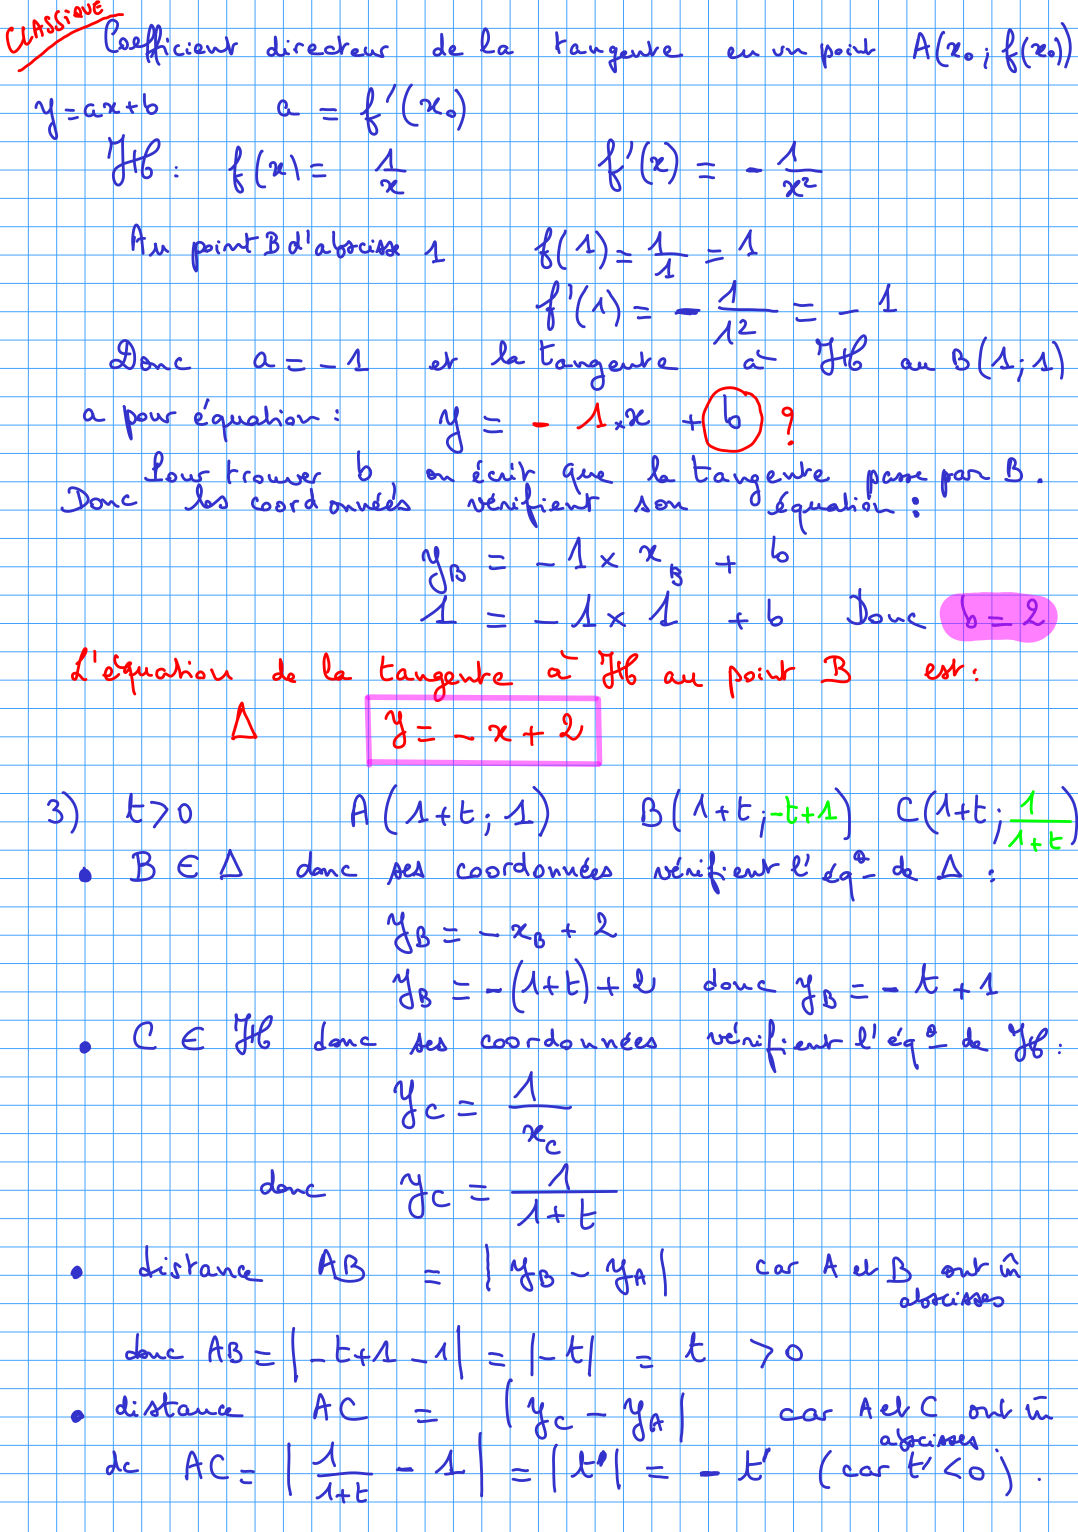 CLASSIQUE
Coefficient directeur de la tangente en un point A(x₀ ; f(x₀))
y = ax + b a = f'(x₀)
ℋ : f(x) = 1/x f'(x) = - 1/x²
Au point B d'abscisse 1 f(1) = 1/1 = 1
f'(1) = - 1/1² = - 1
Donc a = - 1 et la tangente à ℋ au B(1 ; 1)
a pour équation : y = - 1 × x + b ?
Pour trouver b on écrit que la tangente passe par B.
Donc les coordonnées vérifient son équation :
y_B = - 1 × x_B + b
1 = - 1 × 1 + b Donc b = 2
L'équation de la tangente à ℋ au point B est :
Δ y = - x + 2
3) t > 0 A(1+t ; 1) B(1+t ; -t+1) C(1+t ; 1/(1+t))
• B ∈ Δ donc ses coordonnées vérifient l'éq° de Δ :
y_B = - x_B + 2
y_B = -(1+t) + 2 donc y_B = - t + 1
• C ∈ ℋ donc ses coordonnées vérifient l'éq° de ℋ :
y_C = 1/x_C
donc y_C = 1/(1+t)
• distance AB = |y_B - y_A| car A et B ont m̂
abscisses
donc AB = |-t+1 - 1| = |-t| = t > 0
• distance AC = |y_C - y_A| car A et C ont m̂
abscisses
dc AC = |1/(1+t) - 1| = |t'| = - t' (car t' < 0).